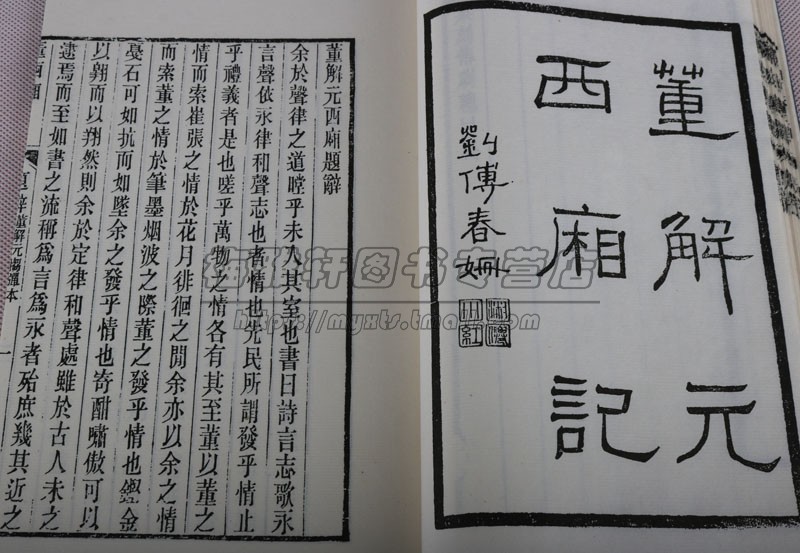 董解元
西廂記
劉傅春姍
董解元西廂題辭
余於聲律之道瞠乎未入其室也書曰詩言志歌永
言聲依永律和聲志也者情也先民所謂發乎情止
乎禮義者是也嗟乎萬物之情各有其至董以董之
情而索崔張之情於花月徘徊之閒余亦以余之情
而索董之情於筆墨烟波之際董之發乎情也鏗金
戞石可如抗而如墜余之發乎情也酣嘯傲可以
以翱而以翔然則余於定律和聲處雖於古人未之
逮焉而至如書之流稱爲言爲永者殆庶幾其近之
董西廂 題辭 董解元 本 一
梅雅轩图书专营店
https://myxts.tmall.com